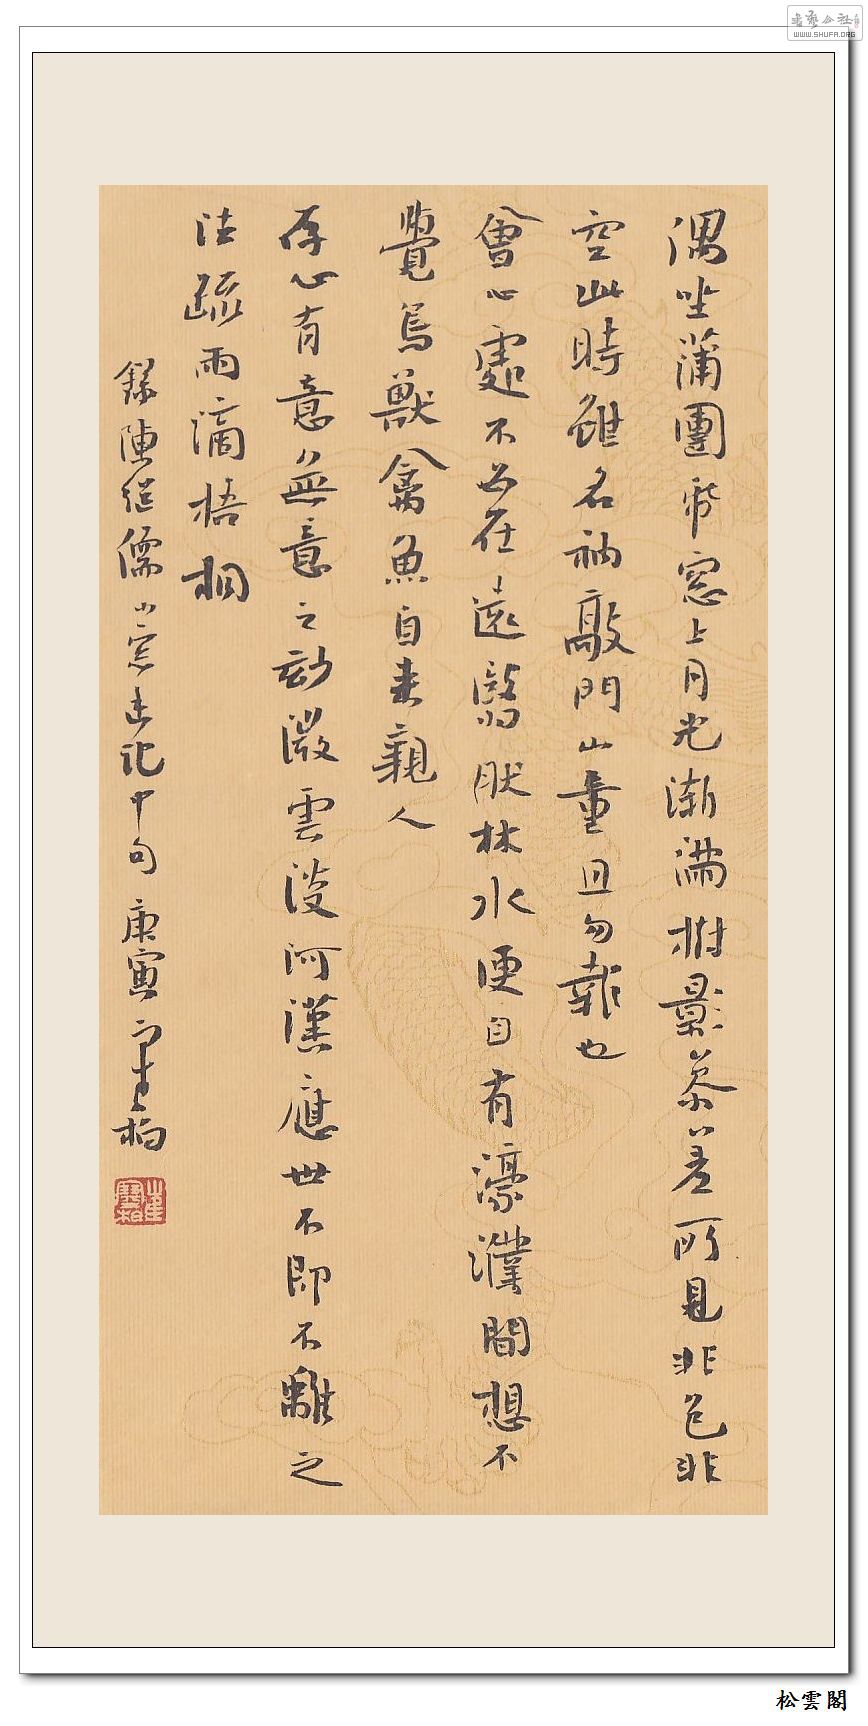 偶坐蒲團紙窓上月光漸滿樹影參差所見非色非
空此時雖名衲敲門山童且勿報也
會心處不必在遠翳然林水便自有濠濮間想不
覺鳥獸禽魚自來親人
存心有意無意之妙微雲淡河漢應世不即不離之
法疏雨滴梧桐
錄陳繼儒小窓幽記中句 庚寅 寒柏
崔寒柏
松雲閣
WWW.SHUFA.ORG